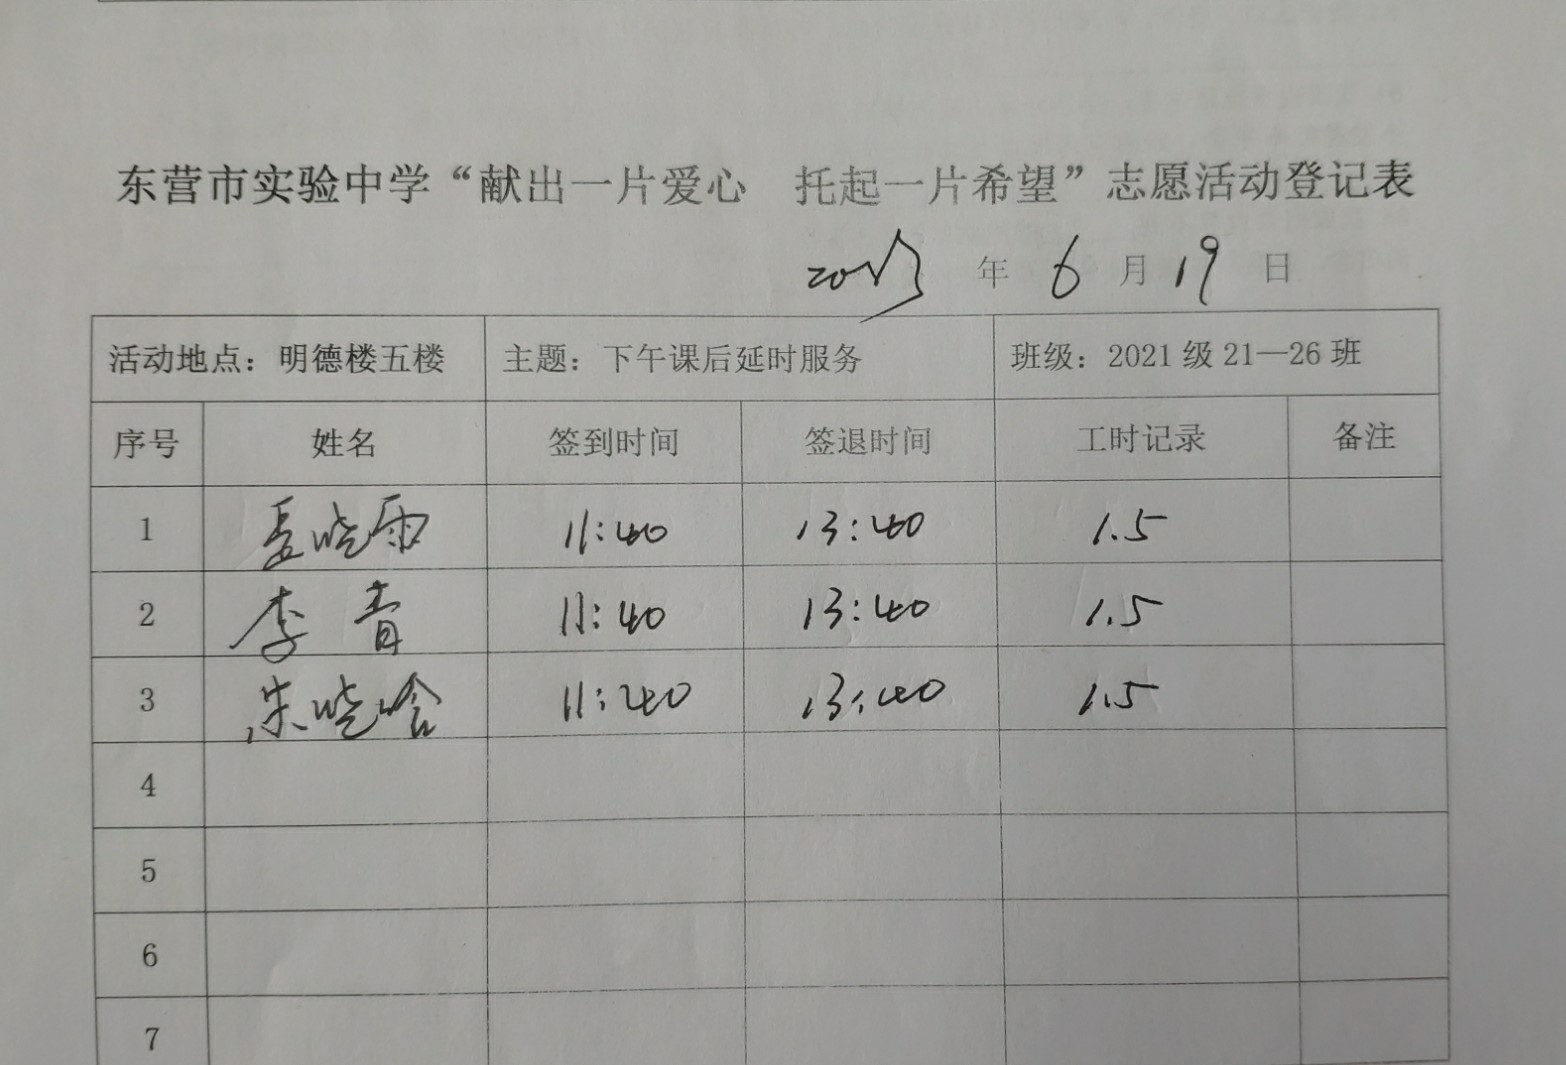 东营市实验中学“献出一片爱心 托起一片希望”志愿活动登记表
2023 年 6 月 19 日
活动地点：明德楼五楼 主题：下午课后延时服务 班级：2021 级 21—26 班
序号 姓名 签到时间 签退时间 工时记录 备注
1 孟晓雨 11:40 13:40 1.5
2 李青 11:40 13:40 1.5
3 朱晓晗 11:40 13:40 1.5
4
5
6
7